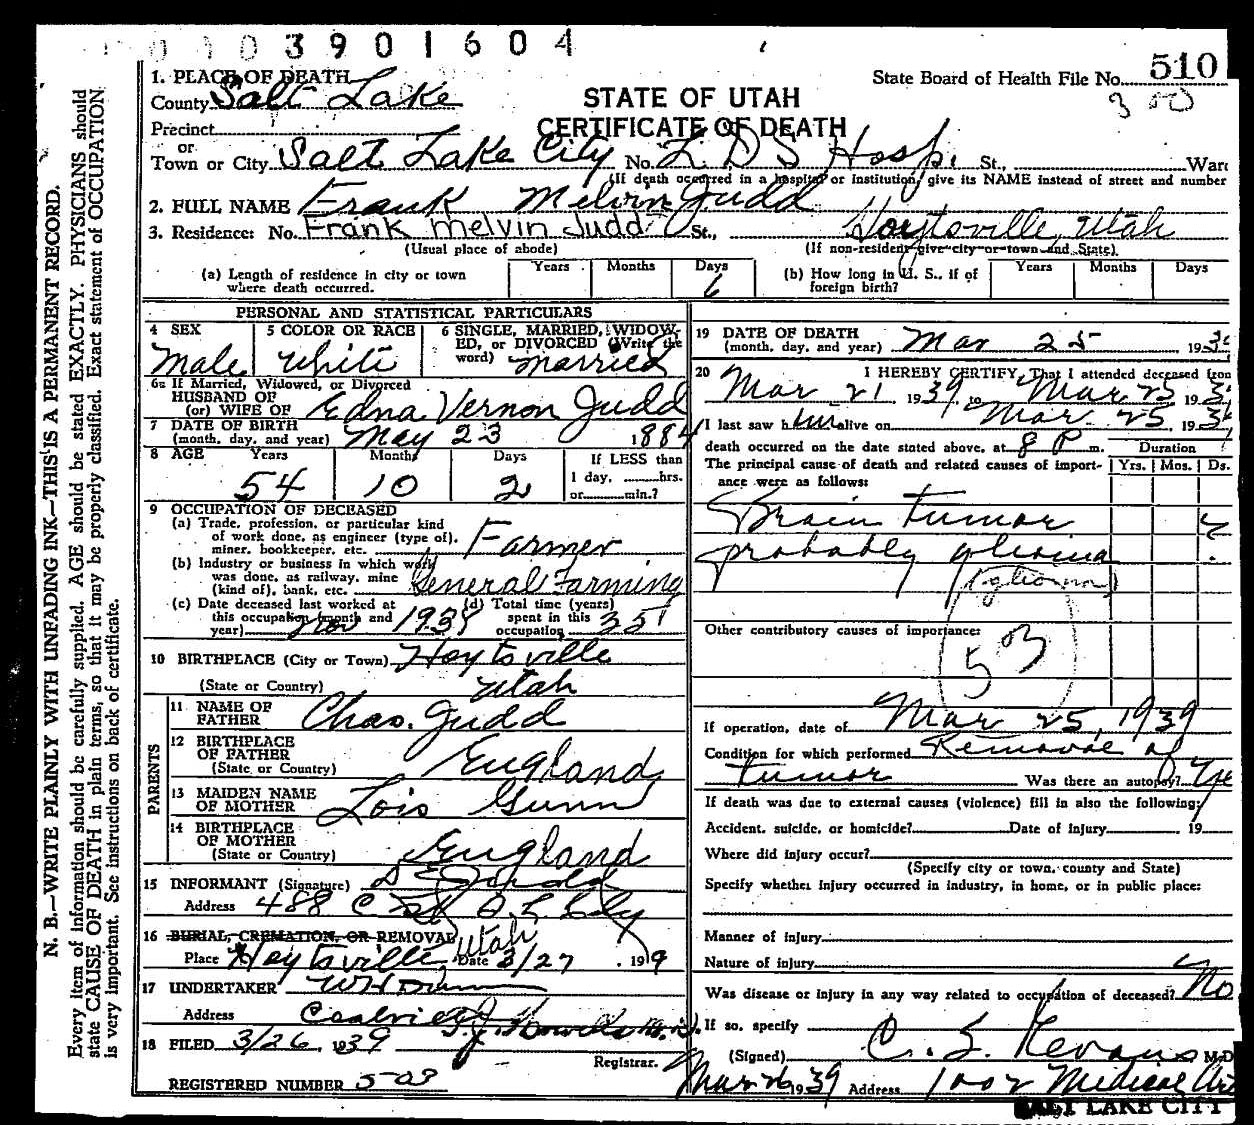 3901604
510
State Board of Health File No.
300
1. PLACE OF DEATH
County Salt Lake
STATE OF UTAH
CERTIFICATE OF DEATH
Precinct
or
Town or City Salt Lake City No. L D S Hosp. St., War
(If death occurred in a hospital or institution, give its NAME instead of street and number
2. FULL NAME Frank Melvin Judd
3. Residence: No. Frank Melvin Judd St., Hoytsville, Utah
(Usual place of abode) (If non-resident give city or town and State)
(a) Length of residence in city or town where death occurred. Years Months Days 6
(b) How long in U. S., if of foreign birth? Years Months Days
PERSONAL AND STATISTICAL PARTICULARS
4 SEX Male
5 COLOR OR RACE White
6 SINGLE, MARRIED, WIDOWED, or DIVORCED (Write the word) Married
6a If Married, Widowed, or Divorced
HUSBAND OF
(or) WIFE OF Edna Vernon Judd
7 DATE OF BIRTH
(month, day, and year) May 23 1884
8 AGE Years 54 Months 10 Days 2 If LESS than 1 day, hrs. or min.?
9 OCCUPATION OF DECEASED
(a) Trade, profession, or particular kind
of work done, as engineer (type of),
miner, bookkeeper, etc. Farmer
(b) Industry or business in which work
was done, as railway, mine
(kind of), bank, etc. General Farming
(c) Date deceased last worked at
this occupation (month and
year) Nov 1938
(d) Total time (years)
spent in this
occupation 35
10 BIRTHPLACE (City or Town) Hoytsville
(State or Country) Utah
PARENTS
11 NAME OF
FATHER Chas. Judd
12 BIRTHPLACE
OF FATHER
(State or Country) England
13 MAIDEN NAME
OF MOTHER Lois Gunn
14 BIRTHPLACE
OF MOTHER
(State or Country) England
15 INFORMANT (Signature) Judd
Address 488 C
16 BURIAL, CREMATION, OR REMOVAL Utah
Place Hoytsville, Date 3/27, 19
17 UNDERTAKER
Address
18 FILED 3/26, 1939
Registrar.
REGISTERED NUMBER 503
19 DATE OF DEATH
(month, day, and year) Mar 25 193
20 I HEREBY CERTIFY, That I attended deceased from
Mar 21 1939, to Mar 25 193
I last saw him alive on Mar 25, 193
death occurred on the date stated above, at 8 P m.
The principal cause of death and related causes of import-
ance were as follows:
Duration
Yrs. Mos. Ds.
Brain Tumor
probably glioma
(glioma)
Other contributory causes of importance:
53
If operation, date of Mar 25, 1939
Condition for which performed Removal of
tumor Was there an autopsy? Ye
If death was due to external causes (violence) fill in also the following:
Accident, suicide, or homicide? Date of injury 19
Where did injury occur?
(Specify city or town, county and State)
Specify whether injury occurred in industry, in home, or in public place:
Manner of injury
Nature of injury
Was disease or injury in any way related to occupation of deceased? No
If so, specify
(Signed) M.D
Mar 26 1939 Address 1002 Medical Art
SALT LAKE CITY
N. B.—WRITE PLAINLY WITH UNFADING INK—THIS IS A PERMANENT RECORD.
Every item of information should be carefully supplied. AGE should be stated EXACTLY. PHYSICIANS should
state CAUSE OF DEATH in plain terms, so that it may be properly classified. Exact statement of OCCUPATION
is very important. See instructions on back of certificate.